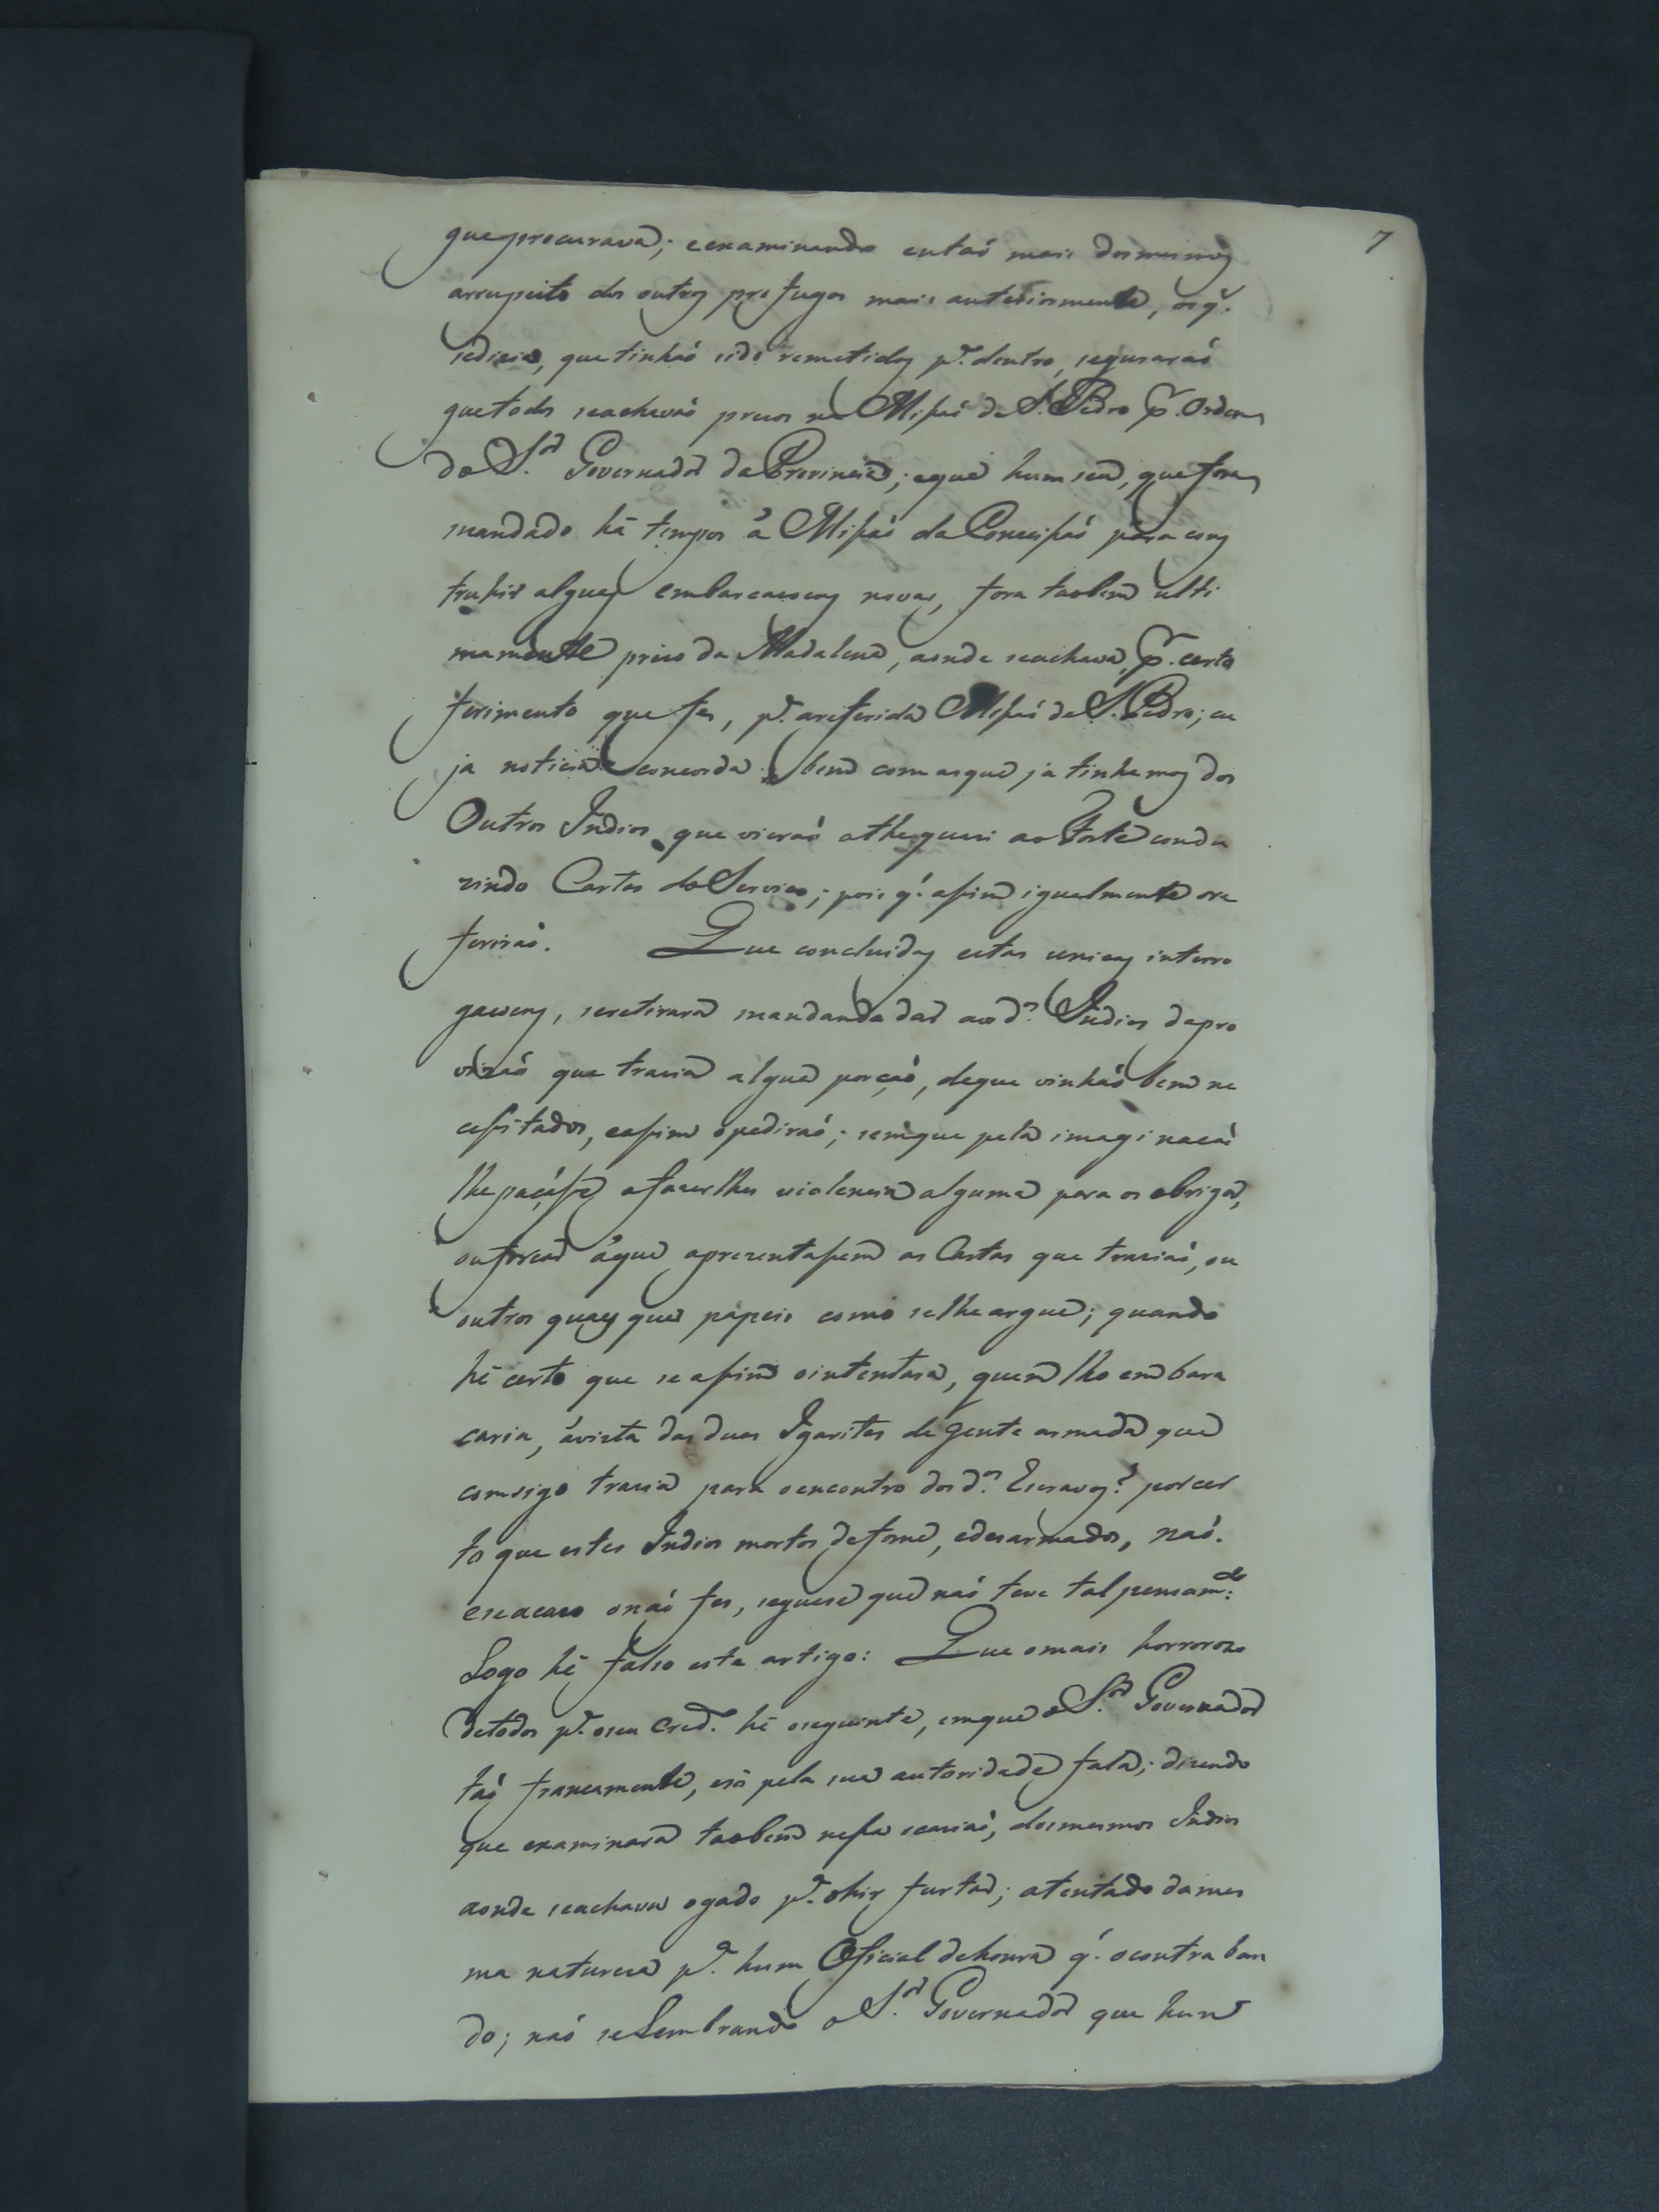 7
que procurava; e examinando entaõ mais dos mesmos
arrespeito dos outros profugos mais anteriormente, os q.
se dizia, que tinhaõ sido remetidos p.ª dentro, seguraraõ
que todos se achavaõ prezos na Missaõ de S. Pedro p. Ordem
do S.or Governador da Provincia; e que hum seu, que fora
mandado hà tempos à Missaõ da Conceissaõ para cons
truhir algũas embarcacoens novas, fora taobem ulti
mamente prezo da Madalena, aonde se achava, p. certo
ferimento que fes, p.ª a referida Missaõ de S. Pedro; cu
ja noticia concorda bem com as que ja tinhamos dos
Outros Indios que vieraõ athe quasi ao Forte condu
zindo Cartas do Servico; pois q. assim igualmente o re
feriraõ. Que concluidas estas unicas interro
gacoens, se retirara mandando dar aos d.os Indios da pro
vizaõ que trazia algũa porçaõ, de que vinhaõ bem ne
cessitados, e assim o pediraõ; sem que pela imaginacaõ
lhe passasse a fazerlhes violencia alguma para os obrigar,
ou forcar à que aprezentassem as Cartas que traziaõ, ou
outros quaes quer papeis como se lhe argue; quando
hè certo que se assim o intentara, quem lho embara
caria, à vista das duas Igarites de gente armada que
comsigo trazia para o encontro dos d.os Escravos? por cer
to que estes Indios mortos de fome, e desarmados, naõ.
e se acazo o naõ fes, seguese que naõ teve tal pensam.to:
Logo hè falso este artigo: Que o mais horrorozo
de todos p.ª o seu Cred.º hè o seguinte, em que o S.or Governador
taõ francamente, e só pela sua autoridade fala; dizendo
que examinara taobem nessa ocaziaõ, dos mesmos Indios
aonde se achava o gado p.ª o hir furtar; atentado da mes
ma natureza p.ª hum Oficial de honra q. o contraban
do; naõ se Lembrando o S.or Governador que hum